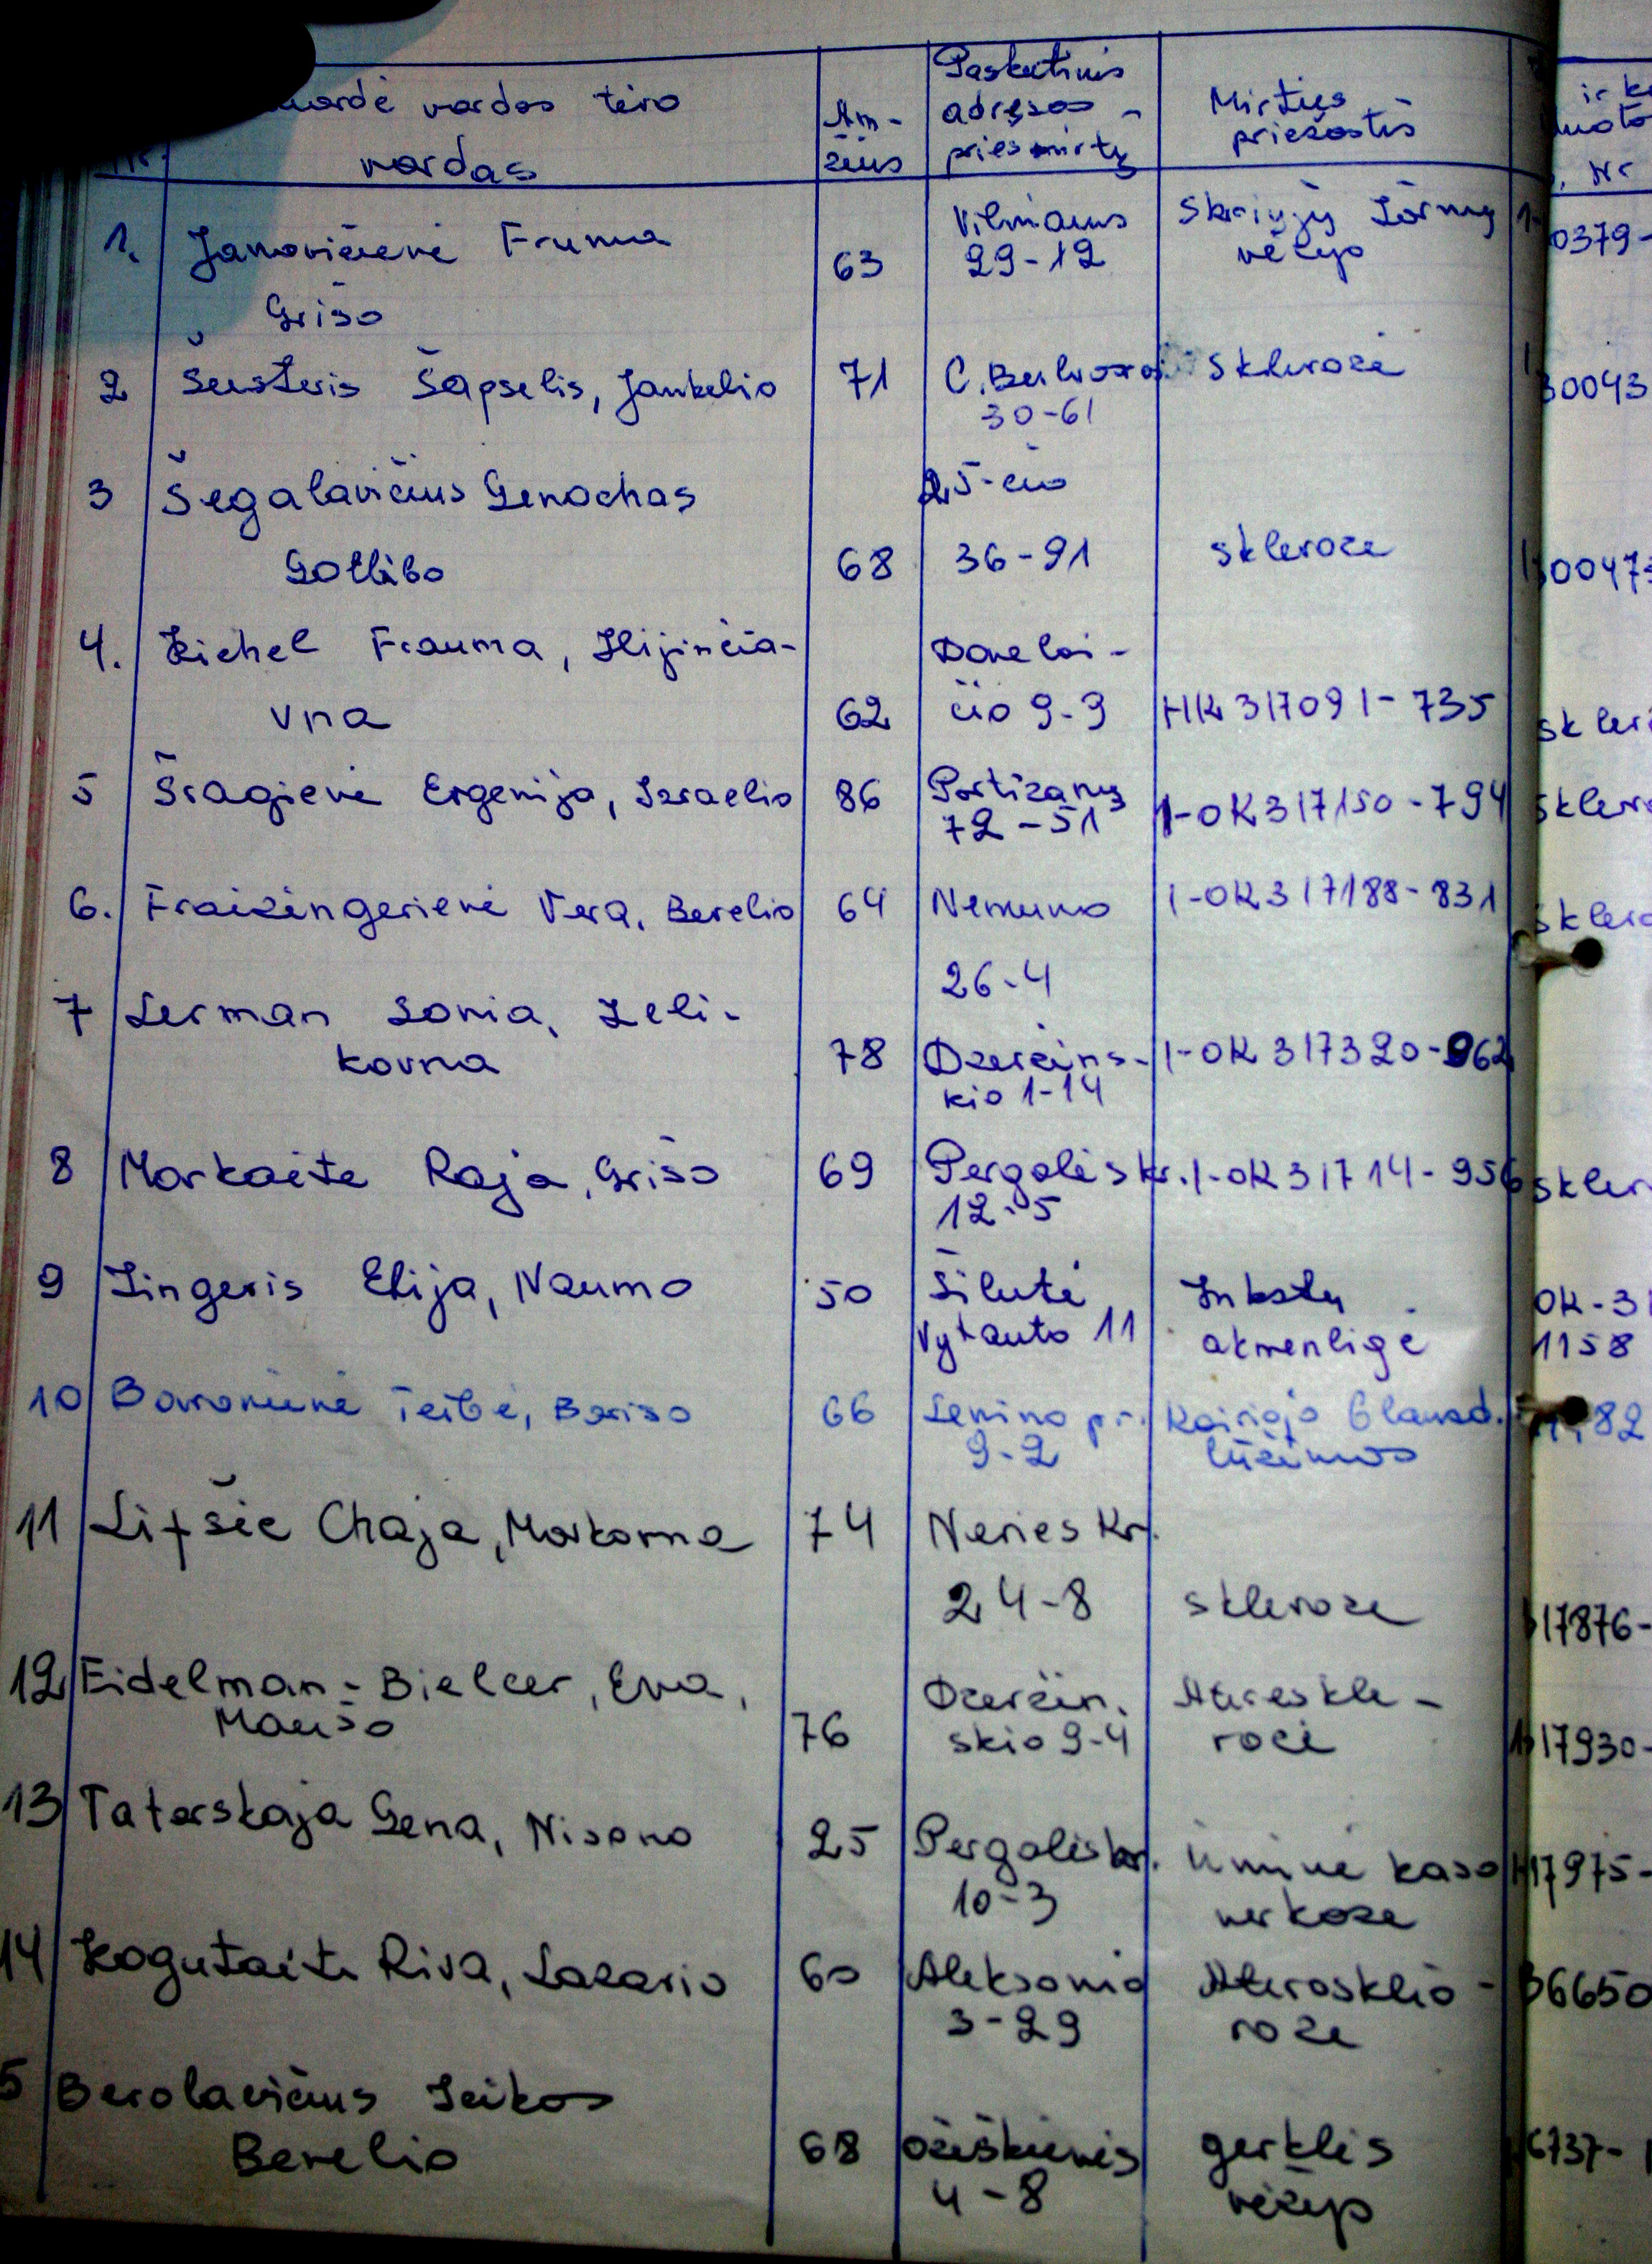 vardė vardas tėvo
vardas
Am-
žius
Paskutinis
adresas
prieš mirtų
Mirties
priežastis
Nr
1. Janovičienė Fruma 63 Vilniaus
29-12 Skrijų žarnų
vėžys 0379-
Grišo
2 Šusteris Šapselis, Jankelio 71 30-61 Sklerozė 30043
3 Šegalavičius Genochas 25-čio
Gotlibo 68 36-91 sklerozė 30047
4. Kichel Frauma, Ilijinčia- Donelai-
vna 62 čio 9-9 HK 317091-735 skler
5 Šragienė Ergenija, Izraelio 86 Partizanų
72-51 1-OK 317150-794 skler
6. Fraizingerienė Vera, Berelio 64 Nemuno 1-OK 317188-831 sklero
26-4
7 Lerman Sonia, Zeli-
kovna 78 Dzeržins-
kio 1-14 1-OK 317320-962
8 Markaitė Raja, Grišo 69 Pergalės kr.
12-5 1-OK 31714-956 skler
9 Zingeris Elija, Naumo 50 Šilutė
Vytauto 11 Inkstų
akmenligė OK-31
1158
10 Baronienė Teibė, Boriso 66 Lenino pr.
9-2 Kairiojo blauzd.
lūžimas 82
11 Lifšic Chaja, Markovna 74 Neries kr.
24-8 sklerozė 17876-
12 Eidelman-Bielcer, Eva,
Maušo 76 Dzeržin.
skio 9-4 Atereskle-
rozė 17930-
13 Tatarskaja Gena, Nisono 25 Pergalės kr.
10-3 ūminė kaso
nerkozė 17975-
14 Kogutaitė Riva, Lazario 60 Aleksonio
3-29 Ateroskle-
rozė 36650
5 Berolavičius Leikas
Berelio 68 Ožeškienės
4-8 gerklės
vėžys 6737-